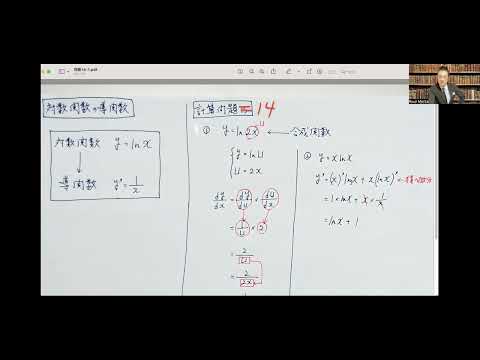 対数関数の導関数
対数関数 y = ln x
導関数 y' = 1/x
計算問題 14
① y = ln 2x u ← 合成関数
y = ln u
u = 2x
dy/dx = dy/du × du/x
= 1/u × 2
= 2/u
= 2/2x
② y = x ln x
y' = (x)' ln x + x (ln x)'
= 1 × ln x + x × 1/x
= ln x + 1